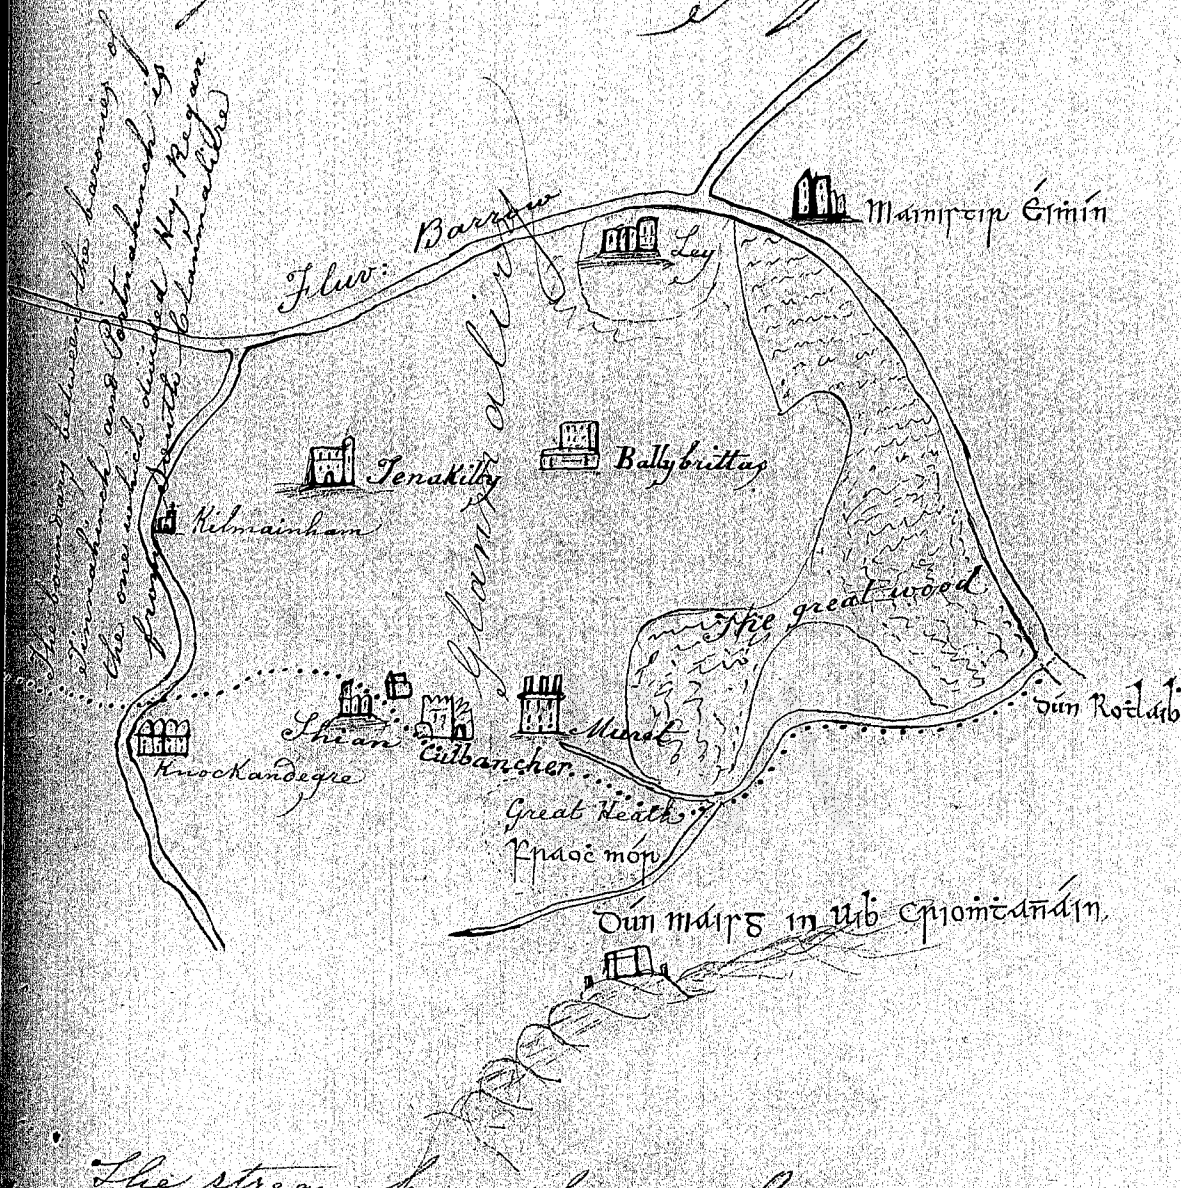 The boundary between the baronies of
Tinnahinch and Portnahinch is
the one which divided Hy-Regan
from South Clanmaliere
Fluv: Barrow
Mainistir Éiṁín
Ley
Glanmalir
Tenakilly
Ballybrittas
Kilmainham
The great wood
Dún Rotlaiḃ
Shian
Culbancher
Muret
Knockandegre
Great Heath
Fraoċ mór
Dún Máirg in Uiḃ Crioṁṫannáin.
The stream